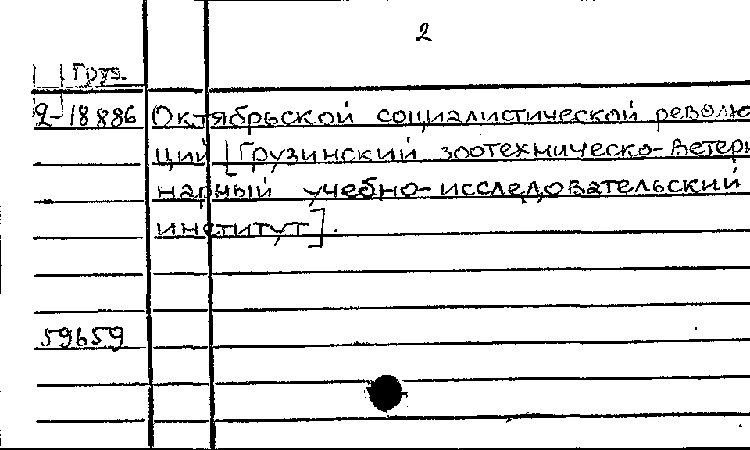 2
Груз.
2-18886 Октябрьской социалистической револю
ций [Грузинский зоотехническо-ветери
нарный учебно-исследовательский
институт].
59659